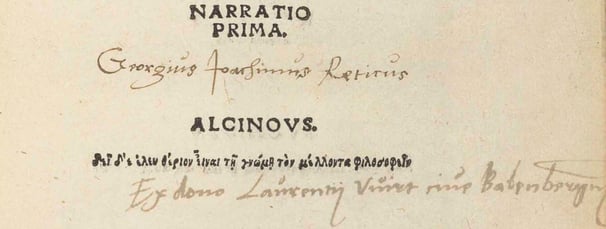 NARRATIO
PRIMA.
Georgius Joachimus Reticus
ALCINOVS.
Δεῖ δ'ἐλευθέριον εἶναι τῇ γνώμῃ τὸν μέλλοντα φιλοσοφεῖν
Ex dono Laurentij cive